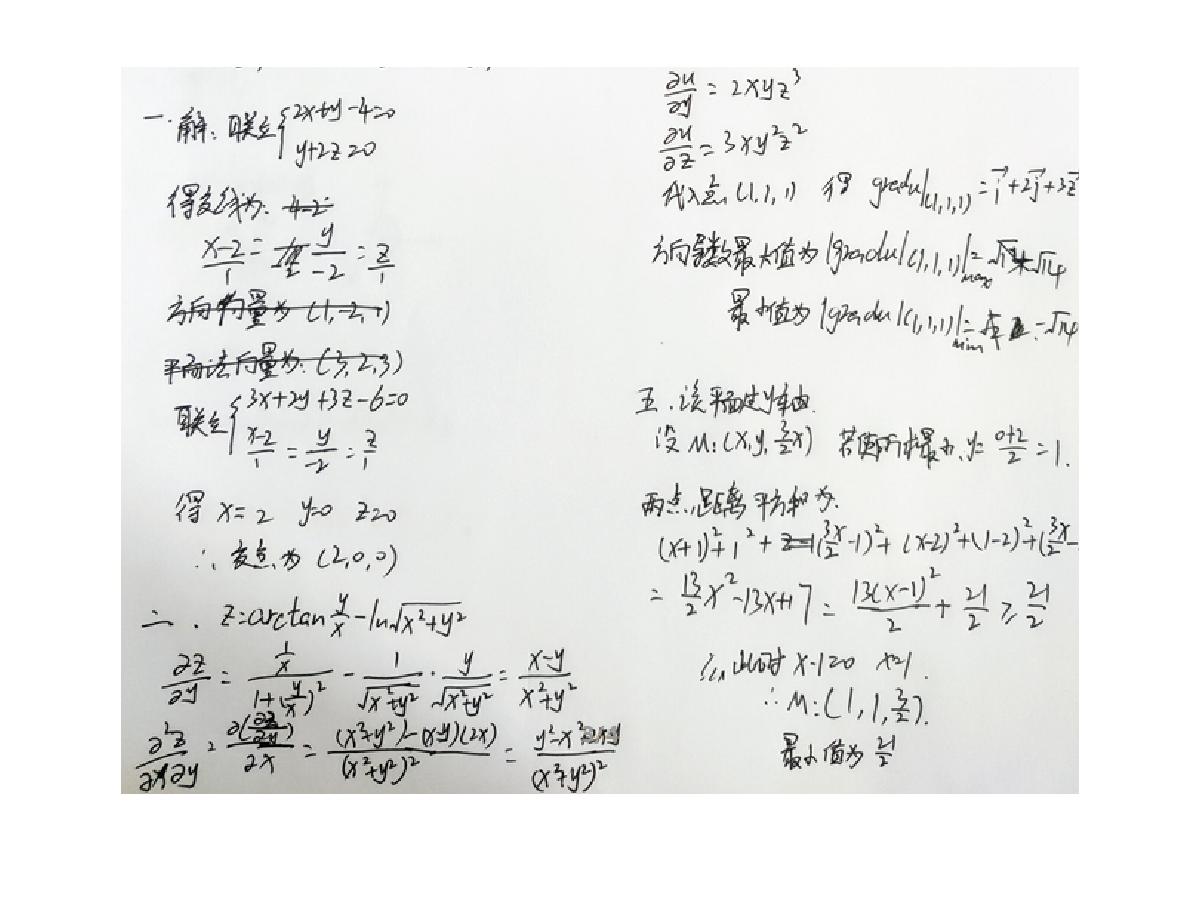 一.解:联立{2x+y-4=0
y+2z=0
得交线为:
x-2/1 = y/-2 = z/1
方向向量为(1,-2,1)
平面法向量为:(3,2,3)
联立{3x+2y+3z-6=0
x-2/1 = y/-2 = z/1
得 x=2 y=0 z=0
∴交点为(2,0,0)
二. z=arctan y/x - ln√(x²+y²)
∂z/∂y = (1/x)/(1+(y/x)²) - 1/√(x²+y²) · y/√(x²+y²) = (x-y)/(x²+y²)
∂²z/∂x∂y = ∂(∂z/∂y)/∂x = ((x²+y²)-(x-y)(2x))/(x²+y²)² = (y²-x²+2xy)/(x²+y²)²
∂u/∂y = 2xyz³
∂u/∂z = 3xy²z²
代入点(1,1,1) 得 gradu|(1,1,1) = i+2j+3z
方向导数最大值为|gradu|(1,1,1)|max = √14
最小值为|gradu|(1,1,1)|min = -√14
五.该平面过y轴由
设M:(x,y,3/2x) 若使所求最小,y= 0+2/2 =1.
两点距离平方和为:
(x+1)²+1²+(3x/2-1)²+(x-2)²+(1-2)²+(3x/2-
= 13/2x²-13x+17 = 13(x-1)²/2 + 21/2 ≥ 21/2
∴此时x-1=0 x=1.
∴M:(1,1,3/2).
最小值为21/2